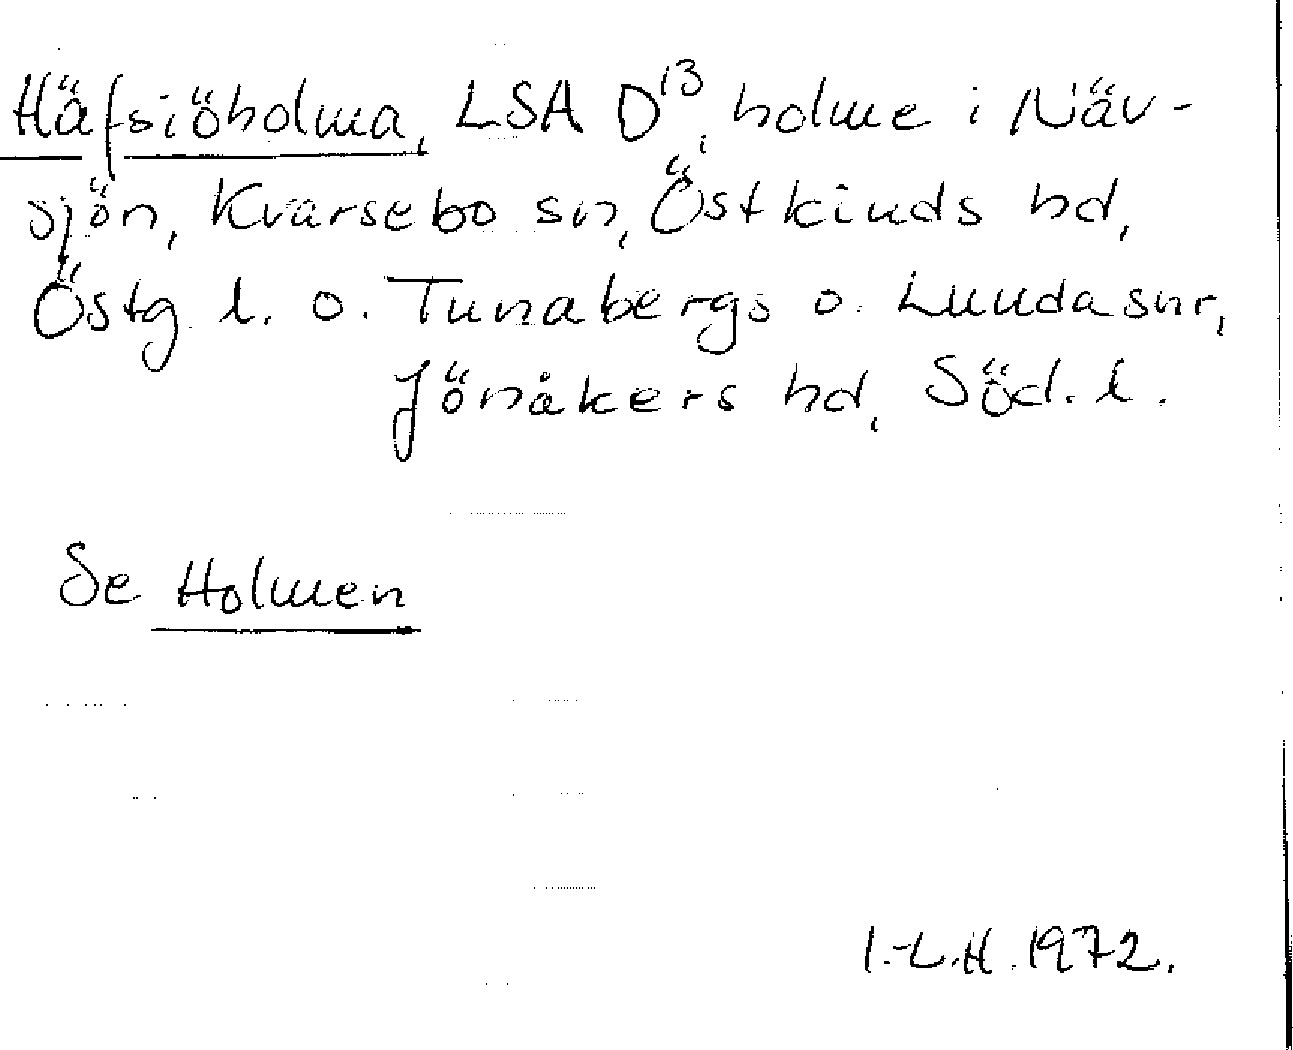 Häfsiöholma, LSA D¹³, holme i Näv-
sjön, Kvarsebo sn, Östkinds hd,
Östg l. o. Tunabergs o. Lunda snr,
Jönåkers hd, Söd. l.
Se Holmen
I.-L.H. 1972.